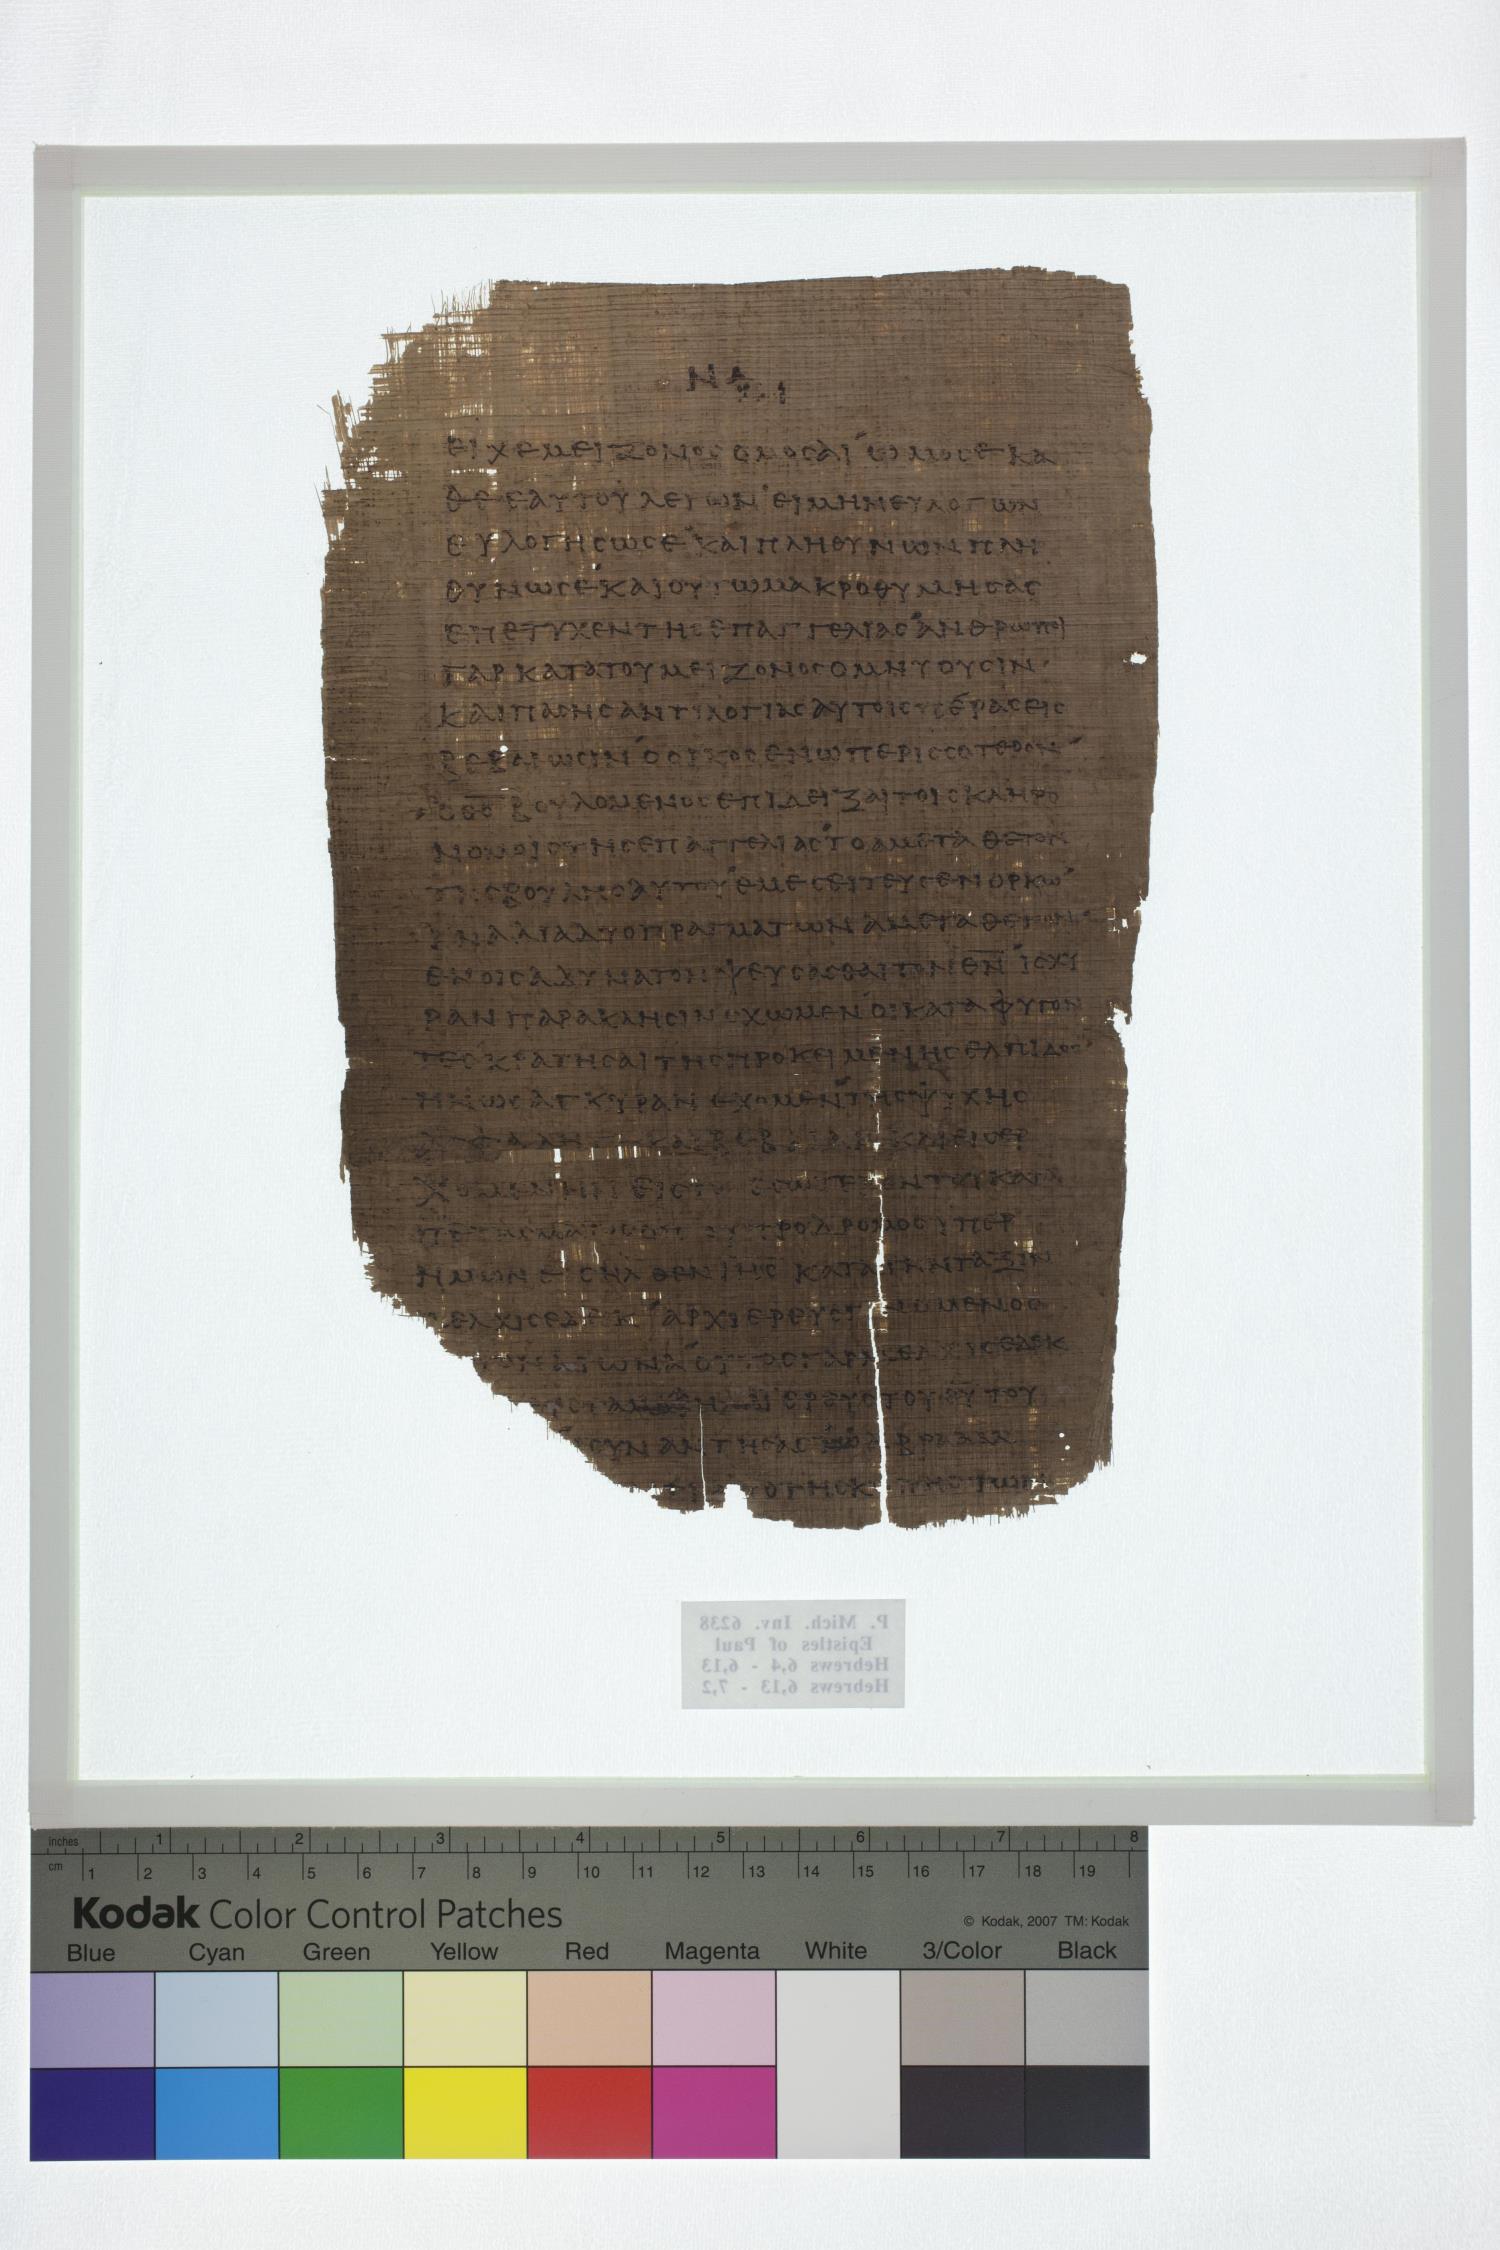 ΝΑ
ΕΙΧΕΜΕΙΖΟΝΟΣΟΜΟCΑΙΩΜΟCΕΚΑ
ΘΕΕΑΥΤΟΥΛΕΓΩΝΕΙΜΗΝΕΥΛΟΓΩΝ
ΕΥΛΟΓΗCΩCΕΚΑΙΠΛΗΘΥΝΩΝΠΛΗ
ΘΥΝΩCΕΚΑΙΟΥΤΩΜΑΚΡΟΘΥΜΗCΑC
ΕΠΕΤΥΧΕΝΤΗCΕΠΑΓΓΕΛΙΑCΑΝΘΡΩΠΟΙ
ΓΑΡΚΑΤΑΤΟΥΜΕΙΖΟΝΟCΟΜΝΥΟΥCΙΝ
ΚΑΙΠΑCΗCΑΝΤΙΛΟΓΙΑCΑΥΤΟΙC ΠΕΡΑCΕΙC
ΒΕΒΑΙΩCΙΝΟΟΡΚΟCΕΝΩΠΕΡΙCCΟΤΕΡΟΝ
ΟΘC ΒΟΥΛΟΜΕΝΟCΕΠΙΔΕΙΞΑΙΤΟΙCΚΛΗΡΟ
ΝΟΜΟΙCΤΗCΕΠΑΓΓΕΛΙΑCΤΟΑΜΕΤΑΘΕΤΟΝ
ΤΗCΒΟΥΛΗCΑΥΤΟΥΕΜΕCΕΙΤΕΥCΕΝΟΡΚΩ
ΙΝΑΔΙΑΔΥΟΠΡΑΓΜΑΤΩΝΑΜΕΤΑΘΕΤΩΝ
ΕΝΟΙCΑΔΥΝΑΤΟΝΨΕΥCΑCΘΑΙΤΟΝΘΝ ΙCΧΥ
ΡΑΝΠΑΡΑΚΛΗCΙΝΕΧΩΜΕΝΟΙΚΑΤΑΦΥΓΟΝ
ΤΕCΚΡΑΤΗCΑΙΤΗCΠΡΟΚΕΙΜΕΝΗCΕΛΠΙΔΟC
ΗΝΩCΑΓΚΥΡΑΝΕΧΟΜΕΝΤΗCΨΥΧΗC
ΚΑΙΕΙCΕΡ
ΧΟΜΕΝΗΝ ΕΙCΤΟ ΕCΩΤΕΡΟΝΤΟΥΚΑΤΑ
ΠΡΟΔΡΟΜΟCΥΠΕΡ
ΗΜΩΝΕΙCΗΛΘΕΝΙΗC ΚΑΤΑΤΗΝΤΑΞΙΝ
ΜΕΛΧΙCΕΔΕΚΑΡΧΙΕΡΕΥCΓΕΝΟΜΕΝΟC
ΤΟΝΑΙΩΝΑΟΥΤΟCΓΑΡΜΕΛΧΙCΕΔΕΚ
ΙΕΡΕΥCΤΟΥΘΥ ΤΟΥ
CΥΝΑΝΤΗCΑC ΑΒΡΑΑΜ
ΤΗCΚΟΠΗCΤΩΝ
P. Mich. Inv. 6238
Epistles of Paul
Hebrews 6,4 - 6,13
Hebrews 6,13 - 7,2
inches 1 2 3 4 5 6 7 8
cm 1 2 3 4 5 6 7 8 9 10 11 12 13 14 15 16 17 18 19
Kodak Color Control Patches
© Kodak, 2007 TM: Kodak
Blue Cyan Green Yellow Red Magenta White 3/Color Black